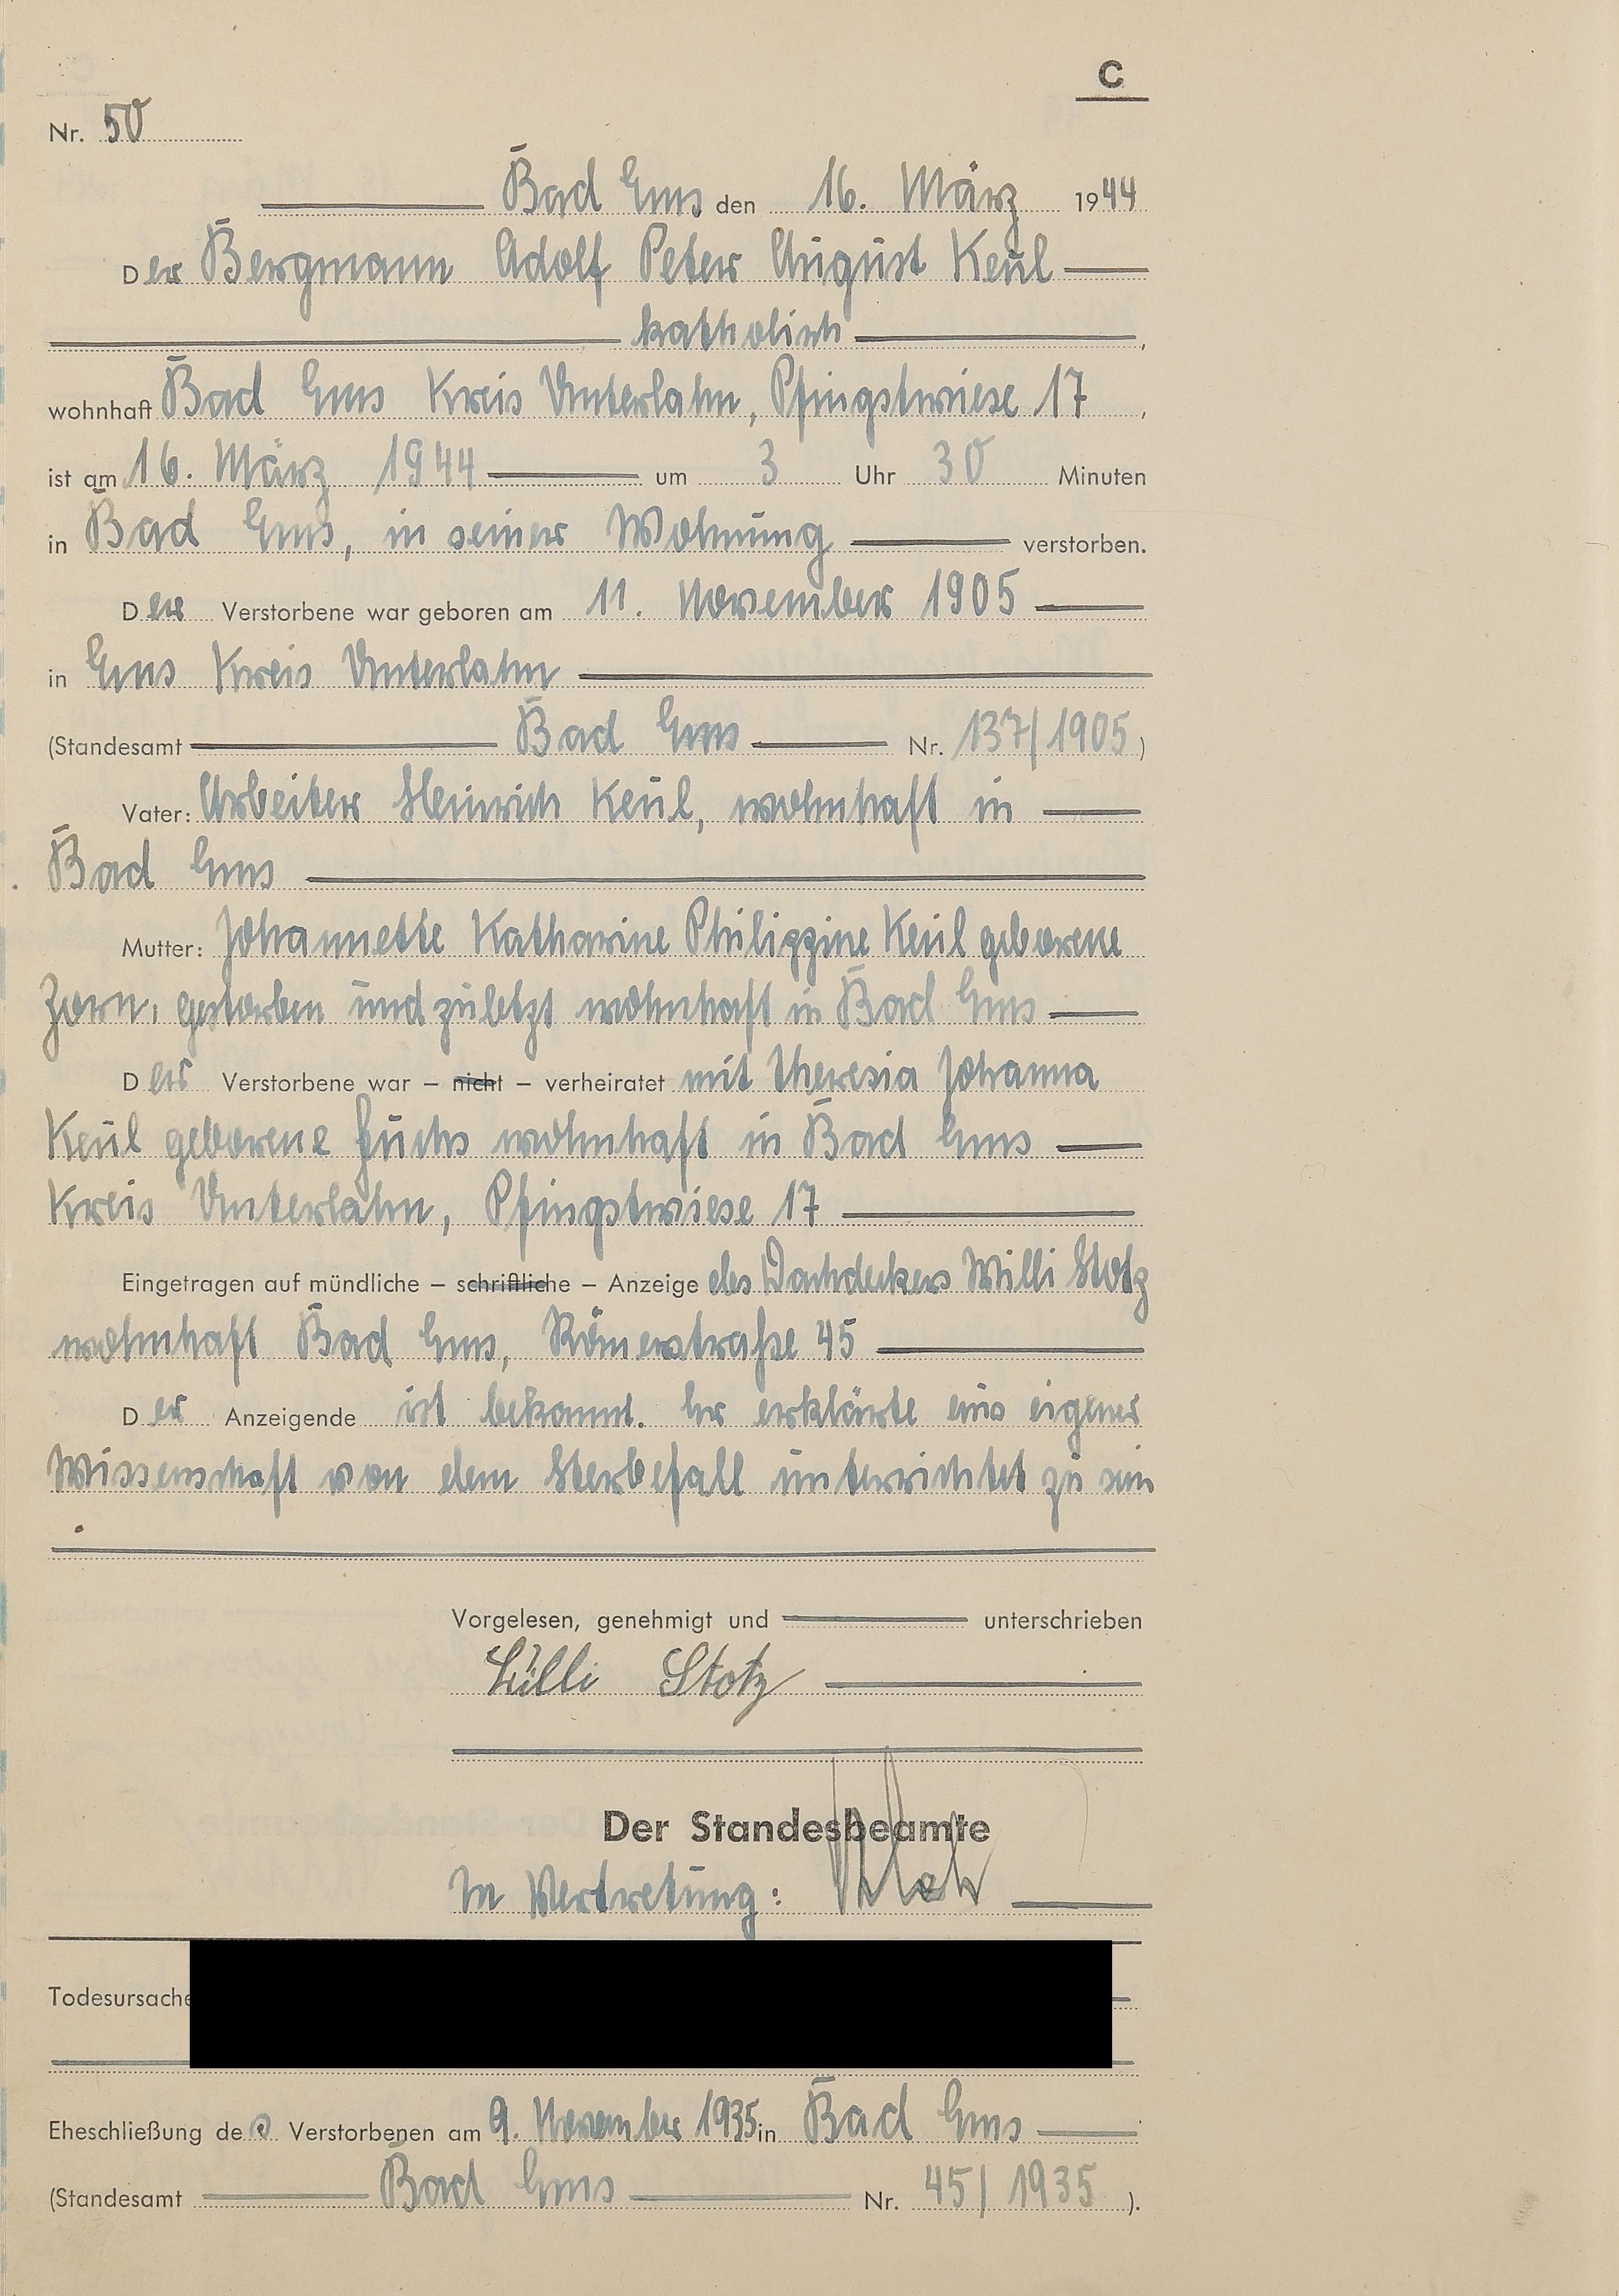 C
Nr. 50
Bad Ems den 16. März 1944
Der Bergmann Adolf Peter August Keul
katholisch,
wohnhaft Bad Ems Kreis Unterlahn, Pfingstwiese 17,
ist am 16. März 1944 um 3 Uhr 30 Minuten
in Bad Ems, in seiner Wohnung verstorben.
Der Verstorbene war geboren am 11. November 1905
in Ems Kreis Unterlahn
(Standesamt Bad Ems Nr. 137/1905)
Vater: Arbeiter Heinrich Keul, wohnhaft in
Bad Ems
Mutter: Johannette Katharine Philippine Keul geborene
Zorn, gestorben und zuletzt wohnhaft in Bad Ems
Der Verstorbene war – nicht – verheiratet mit Theresia Johanna
Keul geborene Fuchs wohnhaft in Bad Ems
Kreis Unterlahn, Pfingstwiese 17
Eingetragen auf mündliche – schriftliche – Anzeige des Dachdeckers Willi Stotz
wohnhaft Bad Ems, Römerstraße 45
Der Anzeigende ist bekannt. Er erklärte aus eigener
Wissenschaft von dem Sterbefall unterrichtet zu sein
.
Vorgelesen, genehmigt und unterschrieben
Willi Stotz
Der Standesbeamte
In Vertretung:
Todesursache
Eheschließung des Verstorbenen am 9. November 1935 in Bad Ems
(Standesamt Bad Ems Nr. 45/1935).